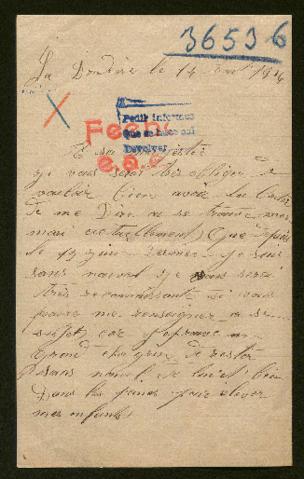 36536
La le 14 1916
Pedir informes
que se hace así
Devolver
Fecho
a sa
je vous serai très obligée de
vouloir bien avoir la bonté
de me dire ou se trouve mon
mari actuellement que depuis
le 19 juin dernier je suis
sans nouvel je vous serai
très reconnaissante si vous
pouvez me renseigner a se
sujet car j'éprouve un
grand chagrin de rester
sans nouvel de lui et bien
dans les pour élever
mes enfants